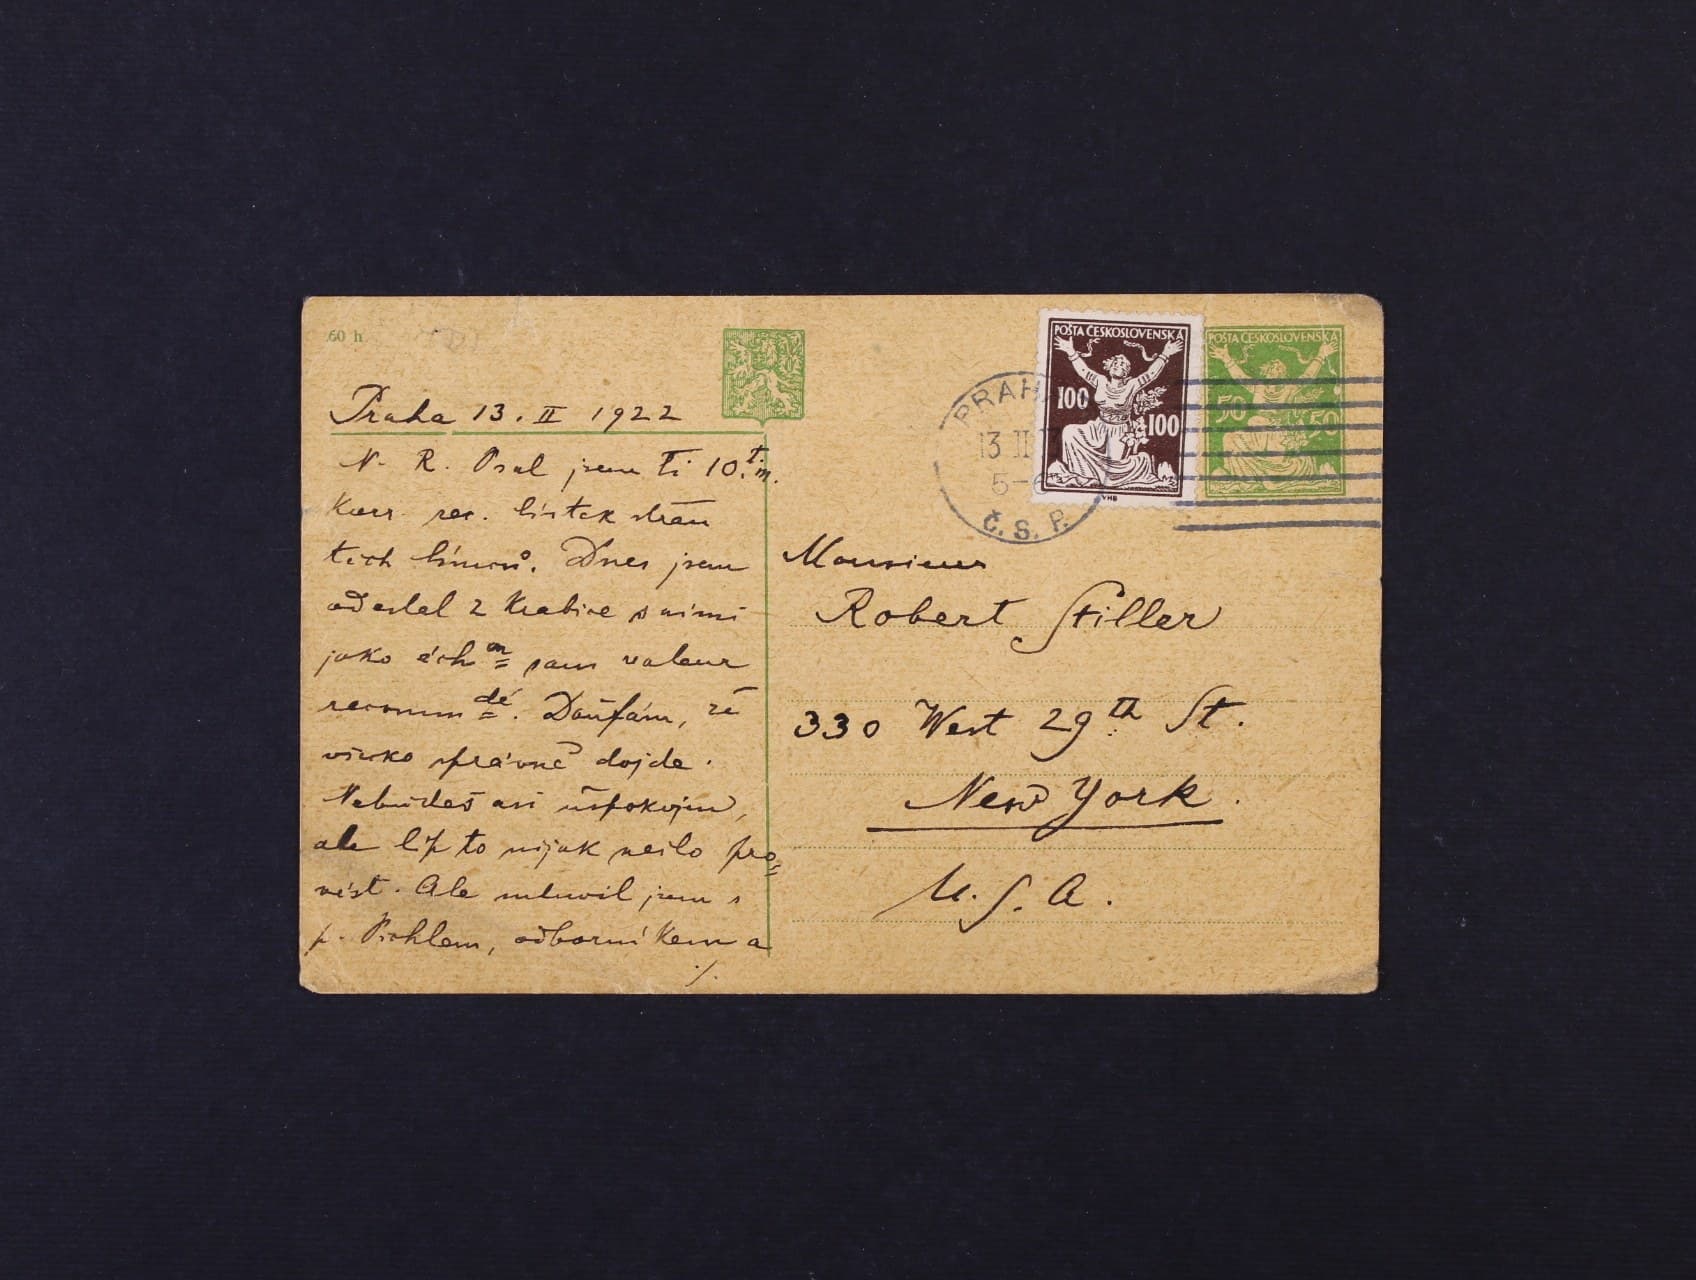 60 h
Praha 13. II 1922
N. R. Psal jsem Ti 10. t. m.
Korr. rec. lístek strán
těch límců. Dnes jsem
odeslal 2 krabice s nimi
jako éch on sans valeur
recommdé. Doufám, že
všecko správně dojde.
Nebudeš asi uspokojen,
ale líp to nijak nešlo pro=
vést. Ale mluvil jsem s
p. Pichlem, odborníkem a
./.
POŠTA ČESKOSLOVENSKÁ
100
100
VHB
POŠTA ČESKOSLOVENSKÁ
50
50
PRAHA
13 II
5-6
Č. S. P.
Monsieur
Robert Stiller
330 West 29th St.
New York.
U. S. A.